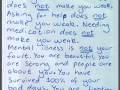 does not make you weak.
Asking for help does not
make you weak. Needing
medication does not
make you weak.
Mental Illness is not your
fault. You are beautiful, you
are strong and people care
about you. You have
survived 100% of your
bad days. You are